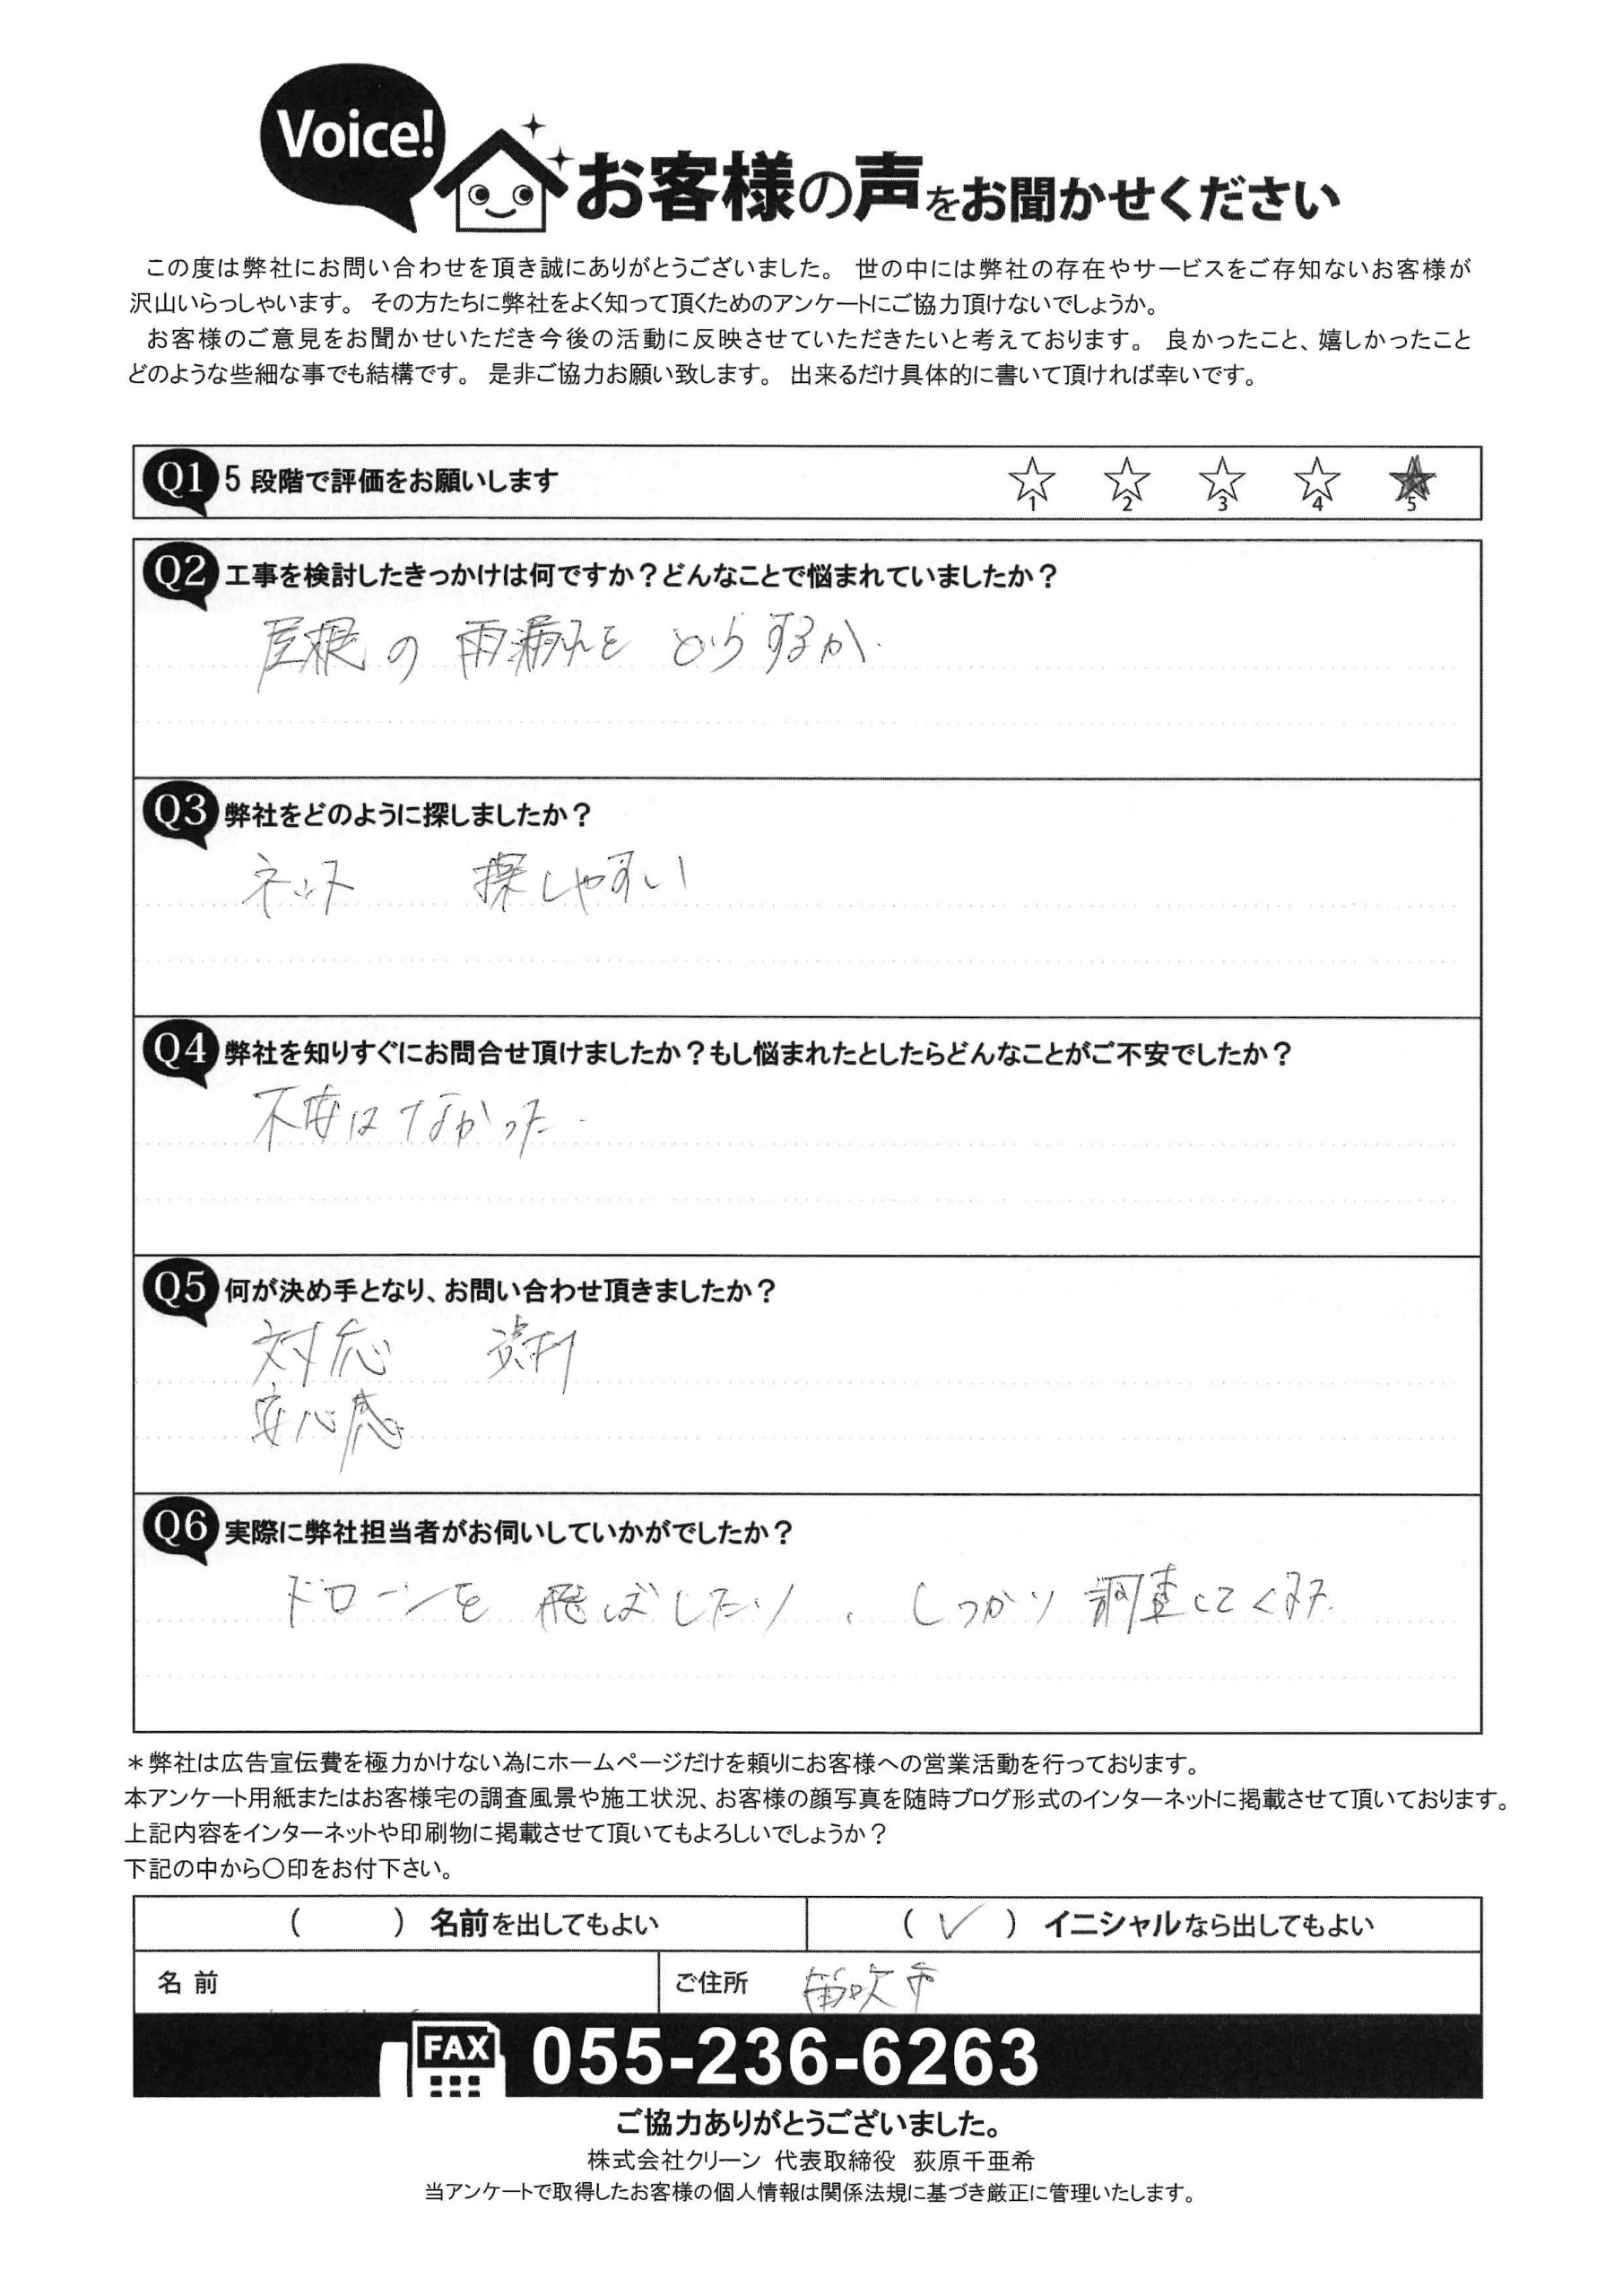 Voice!
お客様の声をお聞かせください
この度は弊社にお問い合わせを頂き誠にありがとうございました。 世の中には弊社の存在やサービスをご存知ないお客様が
沢山いらっしゃいます。 その方たちに弊社をよく知って頂くためのアンケートにご協力頂けないでしょうか。
お客様のご意見をお聞かせいただき今後の活動に反映させていただきたいと考えております。 良かったこと、嬉しかったこと
どのような些細な事でも結構です。 是非ご協力お願い致します。 出来るだけ具体的に書いて頂ければ幸いです。
Q1 5 段階で評価をお願いします ☆1 ☆2 ☆3 ☆4 ★5
Q2 工事を検討したきっかけは何ですか？どんなことで悩まれていましたか？
屋根の 雨漏れを どうするか.
Q3 弊社をどのように探しましたか？
ネット 探しやすい
Q4 弊社を知りすぐにお問合せ頂けましたか？もし悩まれたとしたらどんなことがご不安でしたか？
不安はなかった.
Q5 何が決め手となり、お問い合わせ頂きましたか？
対応 資料
安心感
Q6 実際に弊社担当者がお伺いしていかがでしたか？
ドローンを 飛ばしたり、しっかり 調査してくれた
＊弊社は広告宣伝費を極力かけない為にホームページだけを頼りにお客様への営業活動を行っております。
本アンケート用紙またはお客様宅の調査風景や施工状況、お客様の顔写真を随時ブログ形式のインターネットに掲載させて頂いております。
上記内容をインターネットや印刷物に掲載させて頂いてもよろしいでしょうか？
下記の中から〇印をお付下さい。
（ ）名前を出してもよい （ ✓ ）イニシャルなら出してもよい
名前 ご住所 笛吹市
FAX 055-236-6263
ご協力ありがとうございました。
株式会社クリーン 代表取締役 荻原千亜希
当アンケートで取得したお客様の個人情報は関係法規に基づき厳正に管理いたします。